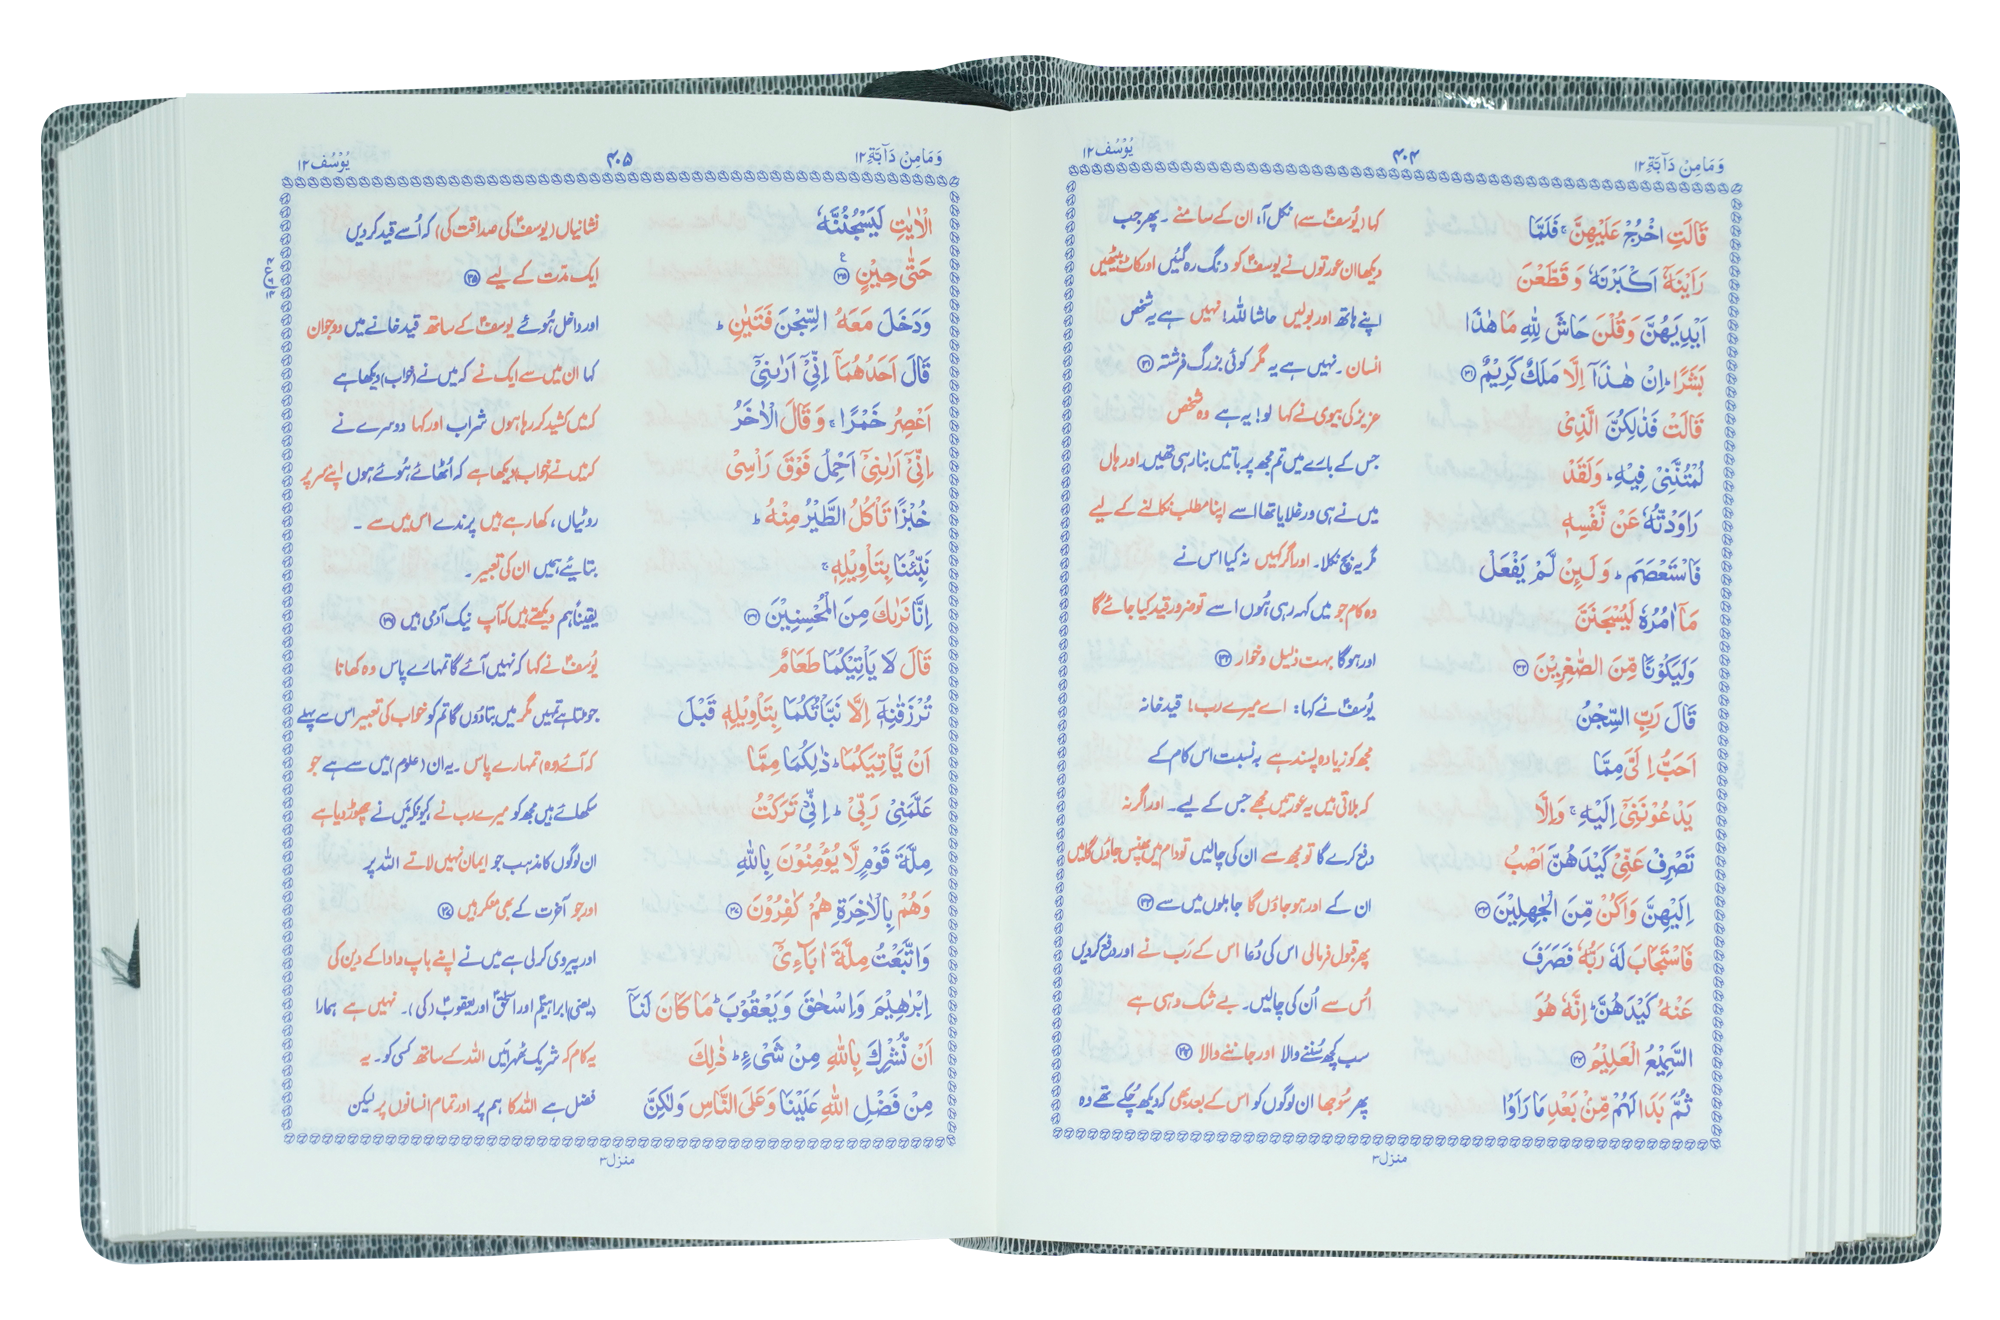 وَمَا مِنْ دَآبَّةٍ ١٢ ۴۰۴ يُوْسُف ١٢
قَالَتِ اخْرُجْ عَلَيْهِنَّ ۚ فَلَمَّا کہا (یُوسفؑ سے) نکل آ، ان کے سامنے ۔ پھر جب
رَاَيْنَهٗٓ اَكْبَرْنَهٗ وَ قَطَّعْنَ دیکھا ان عورتوں نے یوسفؑ کو دنگ رہ گئیں اور کاٹ بیٹھیں
اَيْدِيَهُنَّ وَقُلْنَ حَاشَ لِلّٰهِ مَا هٰذَا اپنے ہاتھ اور بولیں حاشا للہ! نہیں ہے یہ شخص
بَشَرًا ؕ اِنْ هٰذَآ اِلَّا مَلَكٌ كَرِيْمٌ ﴿۳۱﴾ انسان ۔ نہیں ہے یہ مگر کوئی بزرگ فرشتہ ﴿۳۱﴾
قَالَتْ فَذٰلِكُنَّ الَّذِىْ عزیز کی بیوی نے کہا لو! یہ ہے وہ شخص
لُمْتُنَّنِىْ فِيْهِ ؕ وَلَقَدْ جس کے بارے میں تم مجھ پر باتیں بنا رہی تھیں۔ اور ہاں
رَاوَدْتُّهٗ عَنْ نَّفْسِهٖ میں نے ہی ورغلایا تھا اسے اپنا مطلب نکالنے کے لیے
فَاسْتَعْصَمَ ؕ وَ لَىِٕنْ لَّمْ يَفْعَلْ مگر یہ بچ نکلا۔ اور اگر کہیں نہ کیا اس نے
مَآ اٰمُرُهٗ لَيُسْجَنَنَّ وہ کام جو میں کہہ رہی ہُوں اسے تو ضرور قید کیا جائے گا
وَلَيَكُوْنًا مِّنَ الصّٰغِرِيْنَ ﴿۳۲﴾ اور ہو گا بہت ذلیل و خوار ﴿۳۲﴾
قَالَ رَبِّ السِّجْنُ یُوسفؑ نے کہا: اے میرے رب! قید خانہ
اَحَبُّ اِلَىَّ مِمَّا مجھ کو زیادہ پسند ہے بہ نسبت اس کام کے
يَدْعُوْنَنِىْٓ اِلَيْهِ ۚ وَاِلَّا کہ بلاتی ہیں یہ عورتیں مجھے جس کے لیے۔ اور اگر نہ
تَصْرِفْ عَنِّىْ كَيْدَهُنَّ اَصْبُ دفع کرے گا تو مجھ سے ان کی چالیں تو دام میں پھنس جاؤں گا میں
اِلَيْهِنَّ وَاَكُنْ مِّنَ الْجٰهِلِيْنَ ﴿۳۳﴾ ان کے اور ہو جاؤں گا جاہلوں میں سے ﴿۳۳﴾
فَاسْتَجَابَ لَهٗ رَبُّهٗ فَصَرَفَ پھر قبول فرمالی اس کی دُعا اس کے رَب نے اور دفع کردیں
عَنْهُ كَيْدَهُنَّ ؕ اِنَّهٗ هُوَ اُس سے اُن کی چالیں۔ بے شک وہی ہے
السَّمِيْعُ الْعَلِيْمُ ﴿۳۴﴾ سب کچھ سُننے والا اور جاننے والا ﴿۳۴﴾
ثُمَّ بَدَا لَهُمْ مِّنْۢ بَعْدِ مَا رَاَوُا پھر سُوجھا ان لوگوں کو اس کے بعد بھی کہ دیکھ چُکے تھے وہ
منزل ۳
وَمَا مِنْ دَآبَّةٍ ١٢ ۴۰۵ يُوْسُف ١٢
الْاٰيٰتِ لَيَسْجُنُنَّهٗ نشانیاں (یوسفؑ کی صداقت کی) کہ اُسے قید کر دیں
حَتّٰى حِيْنٍ ﴿۳۵﴾ ع ایک مدّت کے لیے ﴿۳۵﴾
وَدَخَلَ مَعَهُ السِّجْنَ فَتَيٰنِ ؕ اور داخل ہُوئے یوسفؑ کے ساتھ قید خانے میں دو جوان
قَالَ اَحَدُهُمَآ اِنِّىْٓ اَرٰىنِىْٓ کہا ان میں سے ایک نے کہ میں نے (خواب) دیکھا ہے
اَعْصِرُ خَمْرًا ۚ وَ قَالَ الْاٰخَرُ کہ میں کشید کر رہا ہوں شراب اور کہا دوسرے نے
اِنِّىْٓ اَرٰىنِىْٓ اَحْمِلُ فَوْقَ رَاْسِىْ کہ میں نے (خواب) دیکھا ہے کہ اُٹھائے ہُوئے ہوں اپنے سر پر
خُبْزًا تَاْكُلُ الطَّيْرُ مِنْهُ ؕ روٹیاں، کھا رہے ہیں پرندے اس میں سے ۔
نَبِّئْنَا بِتَاْوِيْلِهٖ ۚ بتائیے ہمیں ان کی تعبیر۔
اِنَّا نَرٰىكَ مِنَ الْمُحْسِنِيْنَ ﴿۳۶﴾ یقیناً ہم دیکھتے ہیں کہ آپ نیک آدمی ہیں ﴿۳۶﴾
قَالَ لَا يَاْتِيْكُمَا طَعَامٌ یُوسفؑ نے کہا کہ نہیں آئے گا تمہارے پاس وہ کھانا
تُرْزَقٰنِهٖٓ اِلَّا نَبَّاْتُكُمَا بِتَاْوِيْلِهٖ قَبْلَ جو ملتا ہے تمہیں مگر میں بتا دوں گا تم کو خواب کی تعبیر اس سے پہلے
اَنْ يَّاْتِيَكُمَا ؕ ذٰلِكُمَا مِمَّا کہ آئے (وہ) تمہارے پاس ۔ یہ ان (علوم) میں سے ہے جو
عَلَّمَنِىْ رَبِّىْ ؕ اِنِّىْ تَرَكْتُ سکھائے ہیں مجھ کو میرے رب نے، کیونکہ میں نے چھوڑ دیا ہے
مِلَّةَ قَوْمٍ لَّا يُؤْمِنُوْنَ بِاللّٰهِ ان لوگوں کا مذہب جو ایمان نہیں لاتے اللہ پر
وَهُمْ بِالْاٰخِرَةِ هُمْ كٰفِرُوْنَ ﴿۳۷﴾ اور جو آخرت کے بھی منکر ہیں ﴿۳۷﴾
وَاتَّبَعْتُ مِلَّةَ اٰبَآءِىْٓ اور پیروی کر لی ہے میں نے اپنے باپ دادا کے دین کی
اِبْرٰهِيْمَ وَاِسْحٰقَ وَ يَعْقُوْبَ ؕ مَا كَانَ لَنَآ (یعنی) ابراہیمؑ اور اسحٰقؑ اور یعقوبؑ (کی)۔ نہیں ہے ہمارا
اَنْ نُّشْرِكَ بِاللّٰهِ مِنْ شَىْءٍ ؕ ذٰلِكَ یہ کام کہ شریک ٹھہرائیں اللہ کے ساتھ کسی کو۔ یہ
مِنْ فَضْلِ اللّٰهِ عَلَيْنَا وَعَلَى النَّاسِ وَلٰكِنَّ فضل ہے اللہ کا ہم پر اور تمام انسانوں پر لیکن
منزل ۳